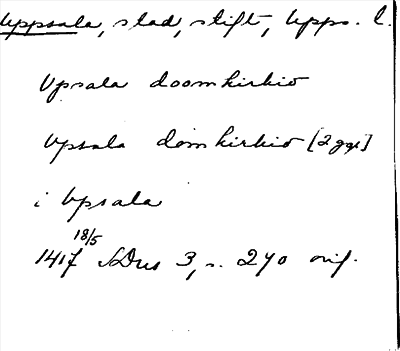 Uppsala, stad, stift, Upps. l.
Vpsala doomkirkio
Vpsala domkirkio [2 ggr]
i Vpsala
1417 18/5 SDns 3, s. 270 orig.